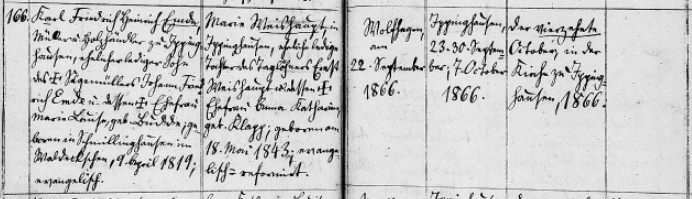 166. Karl Friedrich Heinrich Emde,
Müller u. Holzhändler zu Ipping-
hausen, ehelicher lediger Sohn
des † Sägemüllers Johann Fried-
rich Emde u. dessen † Ehefrau
Marie Louise, geb. Budde, ge-
boren in Schmillinghausen im
Waldeckschen, 9. April 1819;
evangelisch.
Marie Weishaupt, in
Ippinghausen, eheliche ledige
Tochter des Taglöhners Ernst
Weishaupt u. dessen †
Ehefrau Anna Katharina,
geb. Klapp, geboren am
18. Mai 1843; evange-
lisch-reformirt.
Wolfhagen,
am
22. September
1866.
Ippinghausen,
23. 30. Septem-
ber, 7. October
1866.
Der vierzehnte
October, in der
Kirche zu Ipping-
hausen, 1866.